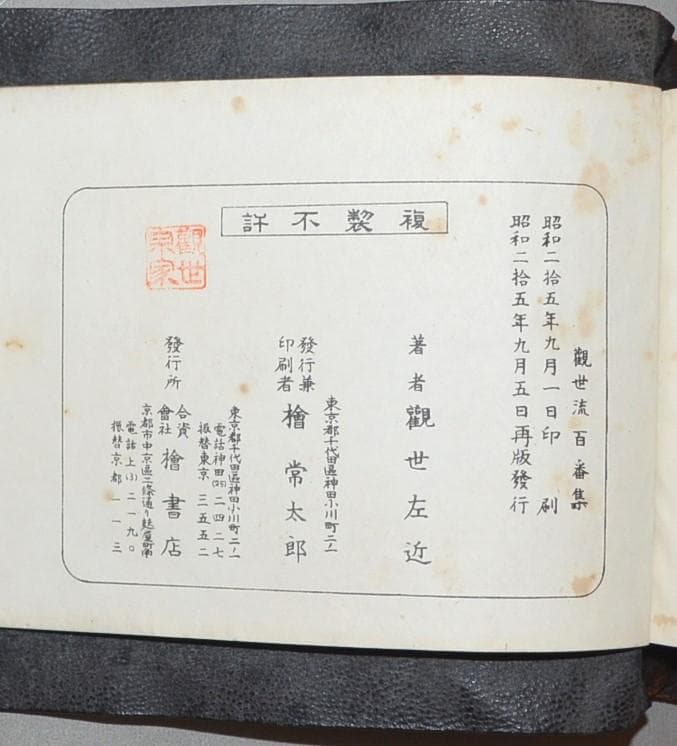 觀世流百番集
昭和二拾五年九月一日印刷
昭和二拾五年九月五日再版發行
複製不許
著者 觀世左近
東京都千代田區神田小川町二ノ一
發行兼
印刷者
檜常太郎
東京都千代田區神田小川町二ノ一
電話神田(25)二四二七
振替東京 三五五二
發行所
合資
會社
檜書店
京都市中京區二條通り麩屋町南
電話上(3)二一九〇
振替京都 一一三
觀世
宗家